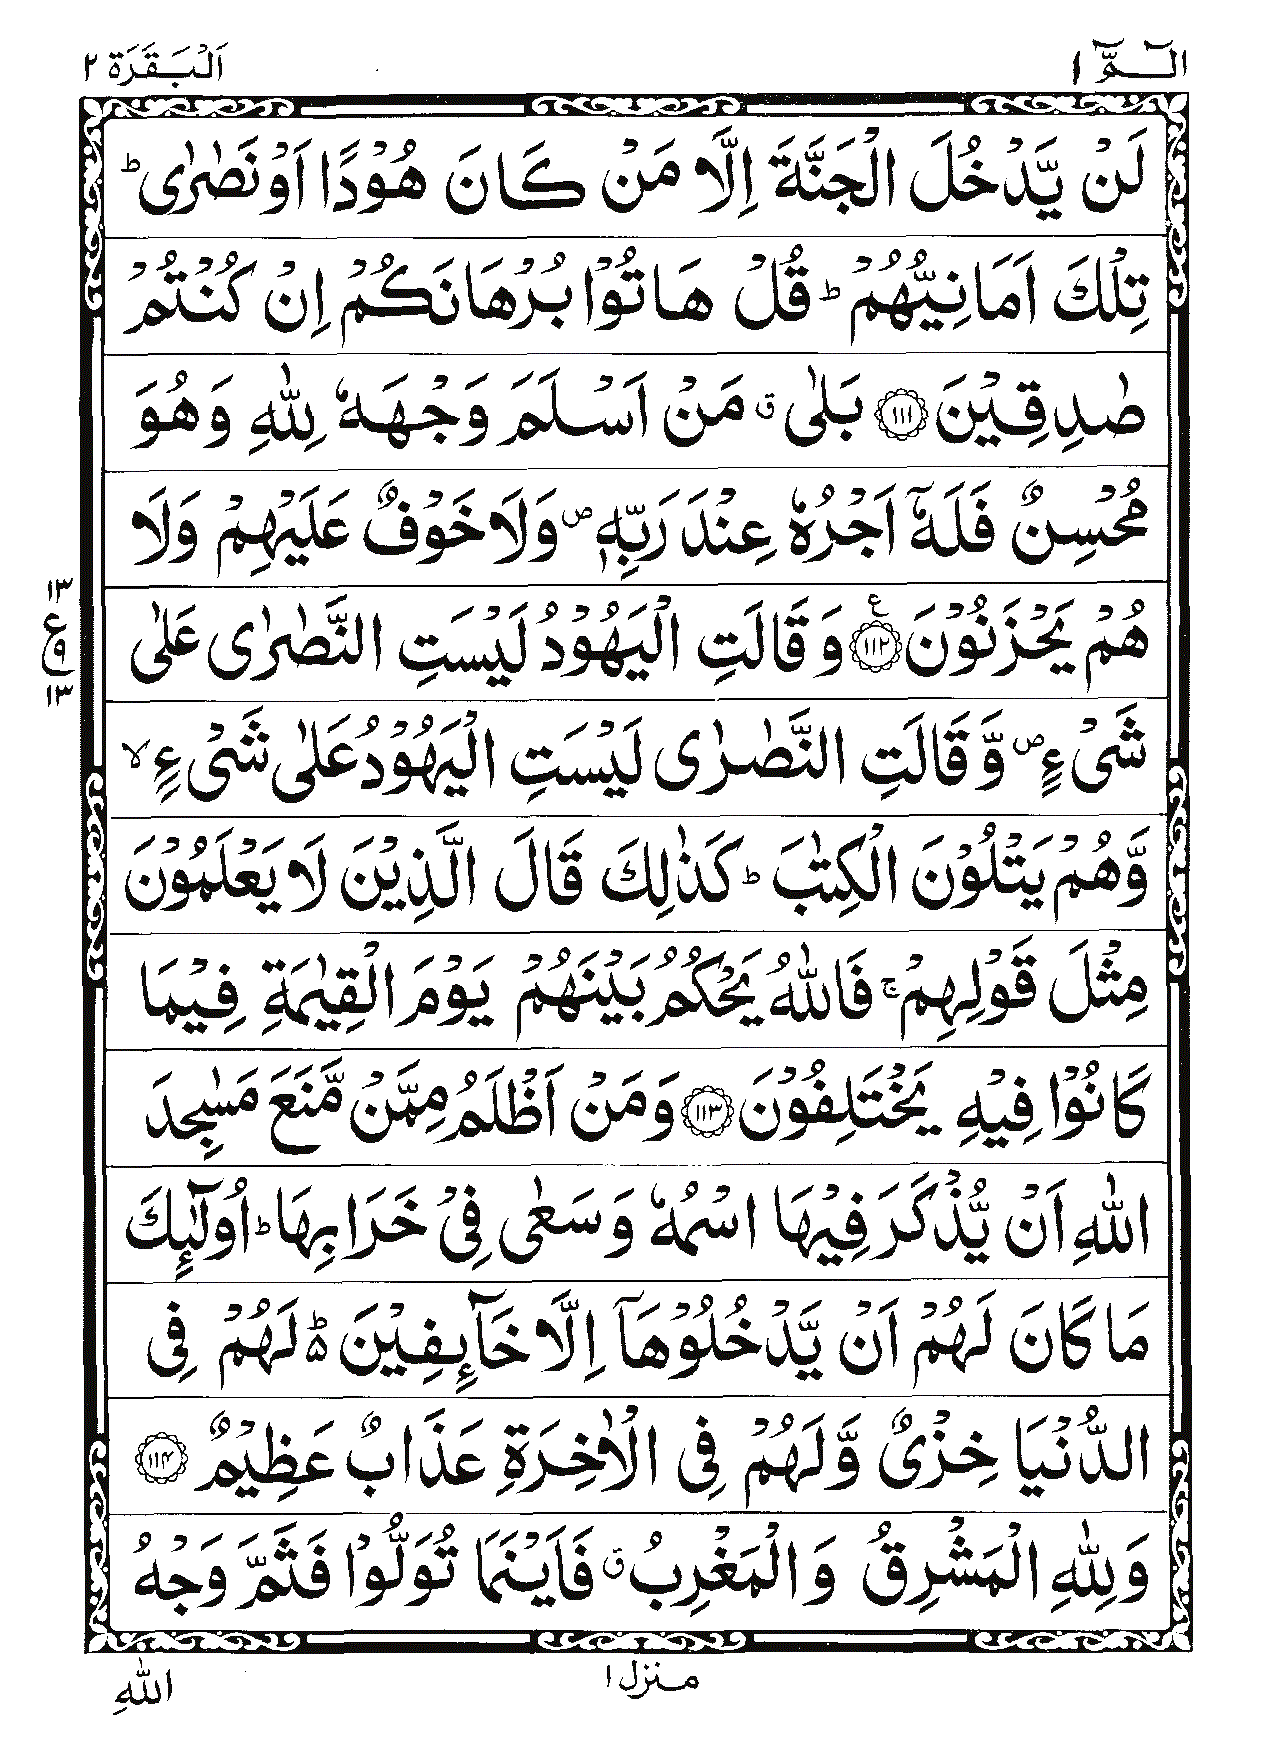 الٓـمّٓ ۱
اَلْبَقَرَة ۲
لَنْ يَّدْخُلَ الْجَنَّةَ اِلَّا مَنْ كَانَ هُوْدًا اَوْ نَصٰرٰى ؕ
تِلْكَ اَمَانِيُّهُمْ ؕ قُلْ هَاتُوْا بُرْهَانَكُمْ اِنْ كُنْتُمْ
صٰدِقِيْنَ ﴿۱۱۱﴾ بَلٰى ۗ مَنْ اَسْلَمَ وَجْهَهٗ لِلّٰهِ وَهُوَ
مُحْسِنٌ فَلَهٗۤ اَجْرُهٗ عِنْدَ رَبِّهٖ ۪ وَلَا خَوْفٌ عَلَيْهِمْ وَلَا
هُمْ يَحْزَنُوْنَ ﴿۱۱۲﴾ ع وَ قَالَتِ الْيَهُوْدُ لَيْسَتِ النَّصٰرٰى عَلٰى
۱۳
ع
۹
۱۳
شَىْءٍ ۪ وَّ قَالَتِ النَّصٰرٰى لَيْسَتِ الْيَهُوْدُ عَلٰى شَىْءٍ ۙ
وَّهُمْ يَتْلُوْنَ الْكِتٰبَ ؕ كَذٰلِكَ قَالَ الَّذِيْنَ لَا يَعْلَمُوْنَ
مِثْلَ قَوْلِهِمْ ۚ فَاللّٰهُ يَحْكُمُ بَيْنَهُمْ يَوْمَ الْقِيٰمَةِ فِيْمَا
كَانُوْا فِيْهِ يَخْتَلِفُوْنَ ﴿۱۱۳﴾ وَمَنْ اَظْلَمُ مِمَّنْ مَّنَعَ مَسٰجِدَ
اللّٰهِ اَنْ يُّذْكَرَ فِيْهَا اسْمُهٗ وَسَعٰى فِىْ خَرَابِهَا ؕ اُولٰٓئِكَ
مَا كَانَ لَهُمْ اَنْ يَّدْخُلُوْهَاۤ اِلَّا خَآئِفِيْنَ ؕ۵ لَهُمْ فِى
الدُّنْيَا خِزْىٌ وَّلَهُمْ فِى الْاٰخِرَةِ عَذَابٌ عَظِيْمٌ ﴿۱۱۴﴾
وَلِلّٰهِ الْمَشْرِقُ وَ الْمَغْرِبُ ۗ فَاَيْنَمَا تُوَلُّوْا فَثَمَّ وَجْهُ
منزل ۱
اللّٰهِ